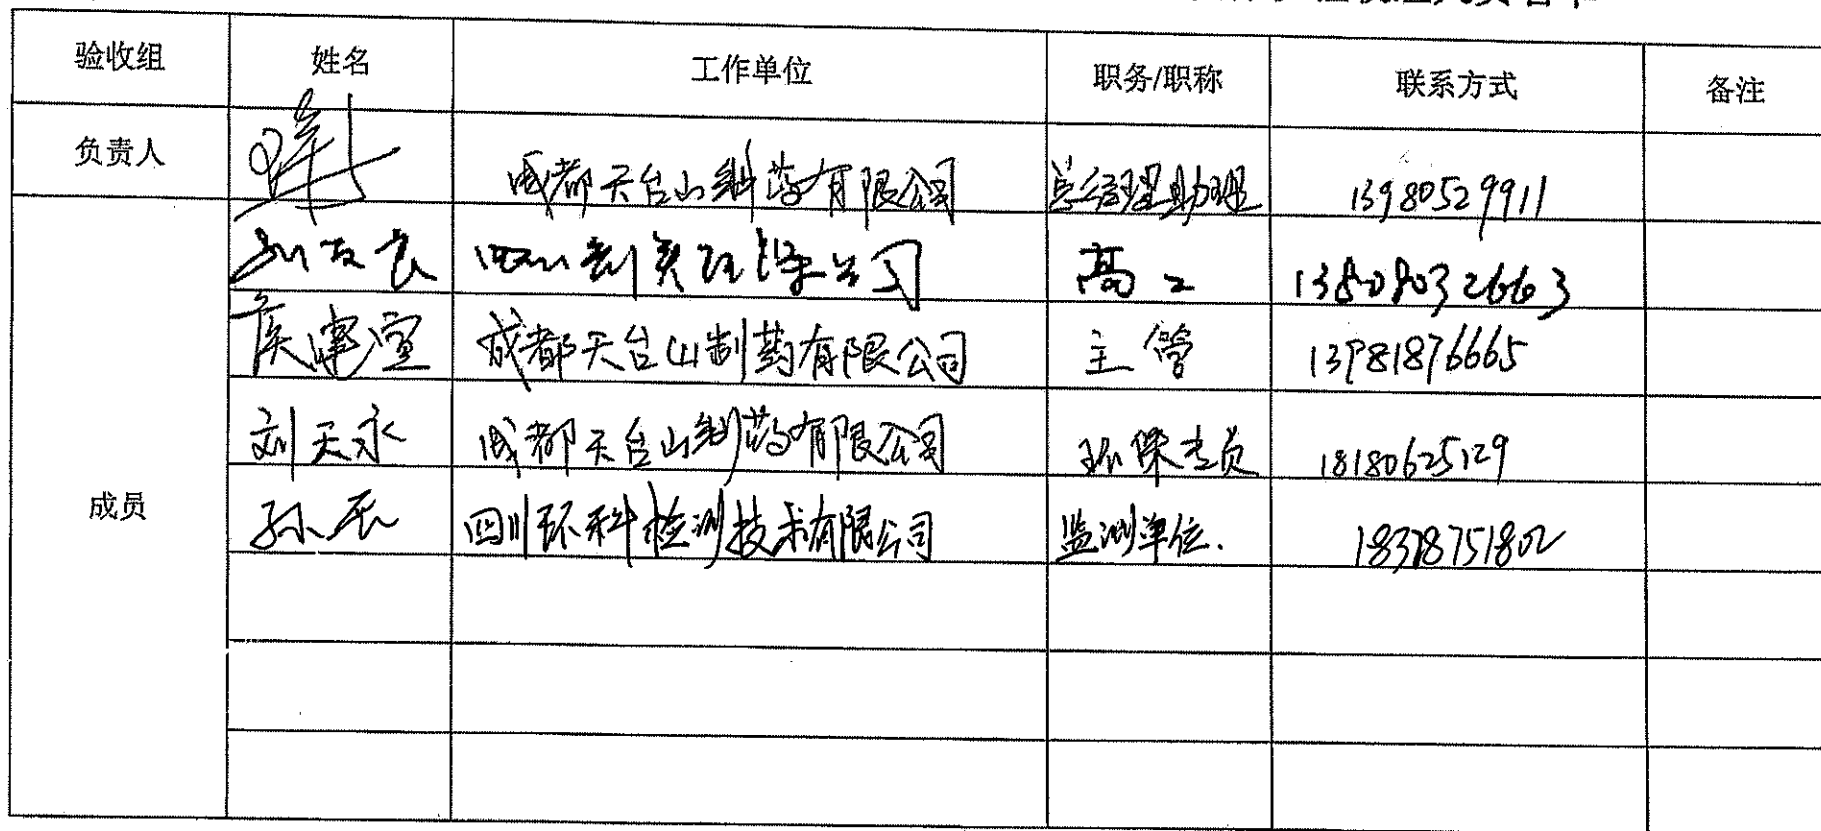 验收组 姓名 工作单位 职务/职称 联系方式 备注
负责人 成都天台山制药有限公司 总经理助理 13980529911
刘友良 高工 13808032663
侯 宣 成都天台山制药有限公司 主管 13981876665
刘天永 成都天台山制药有限公司 环保专员 18180625129
成员
孙 四川环科检测技术有限公司 监测单位. 18378751802